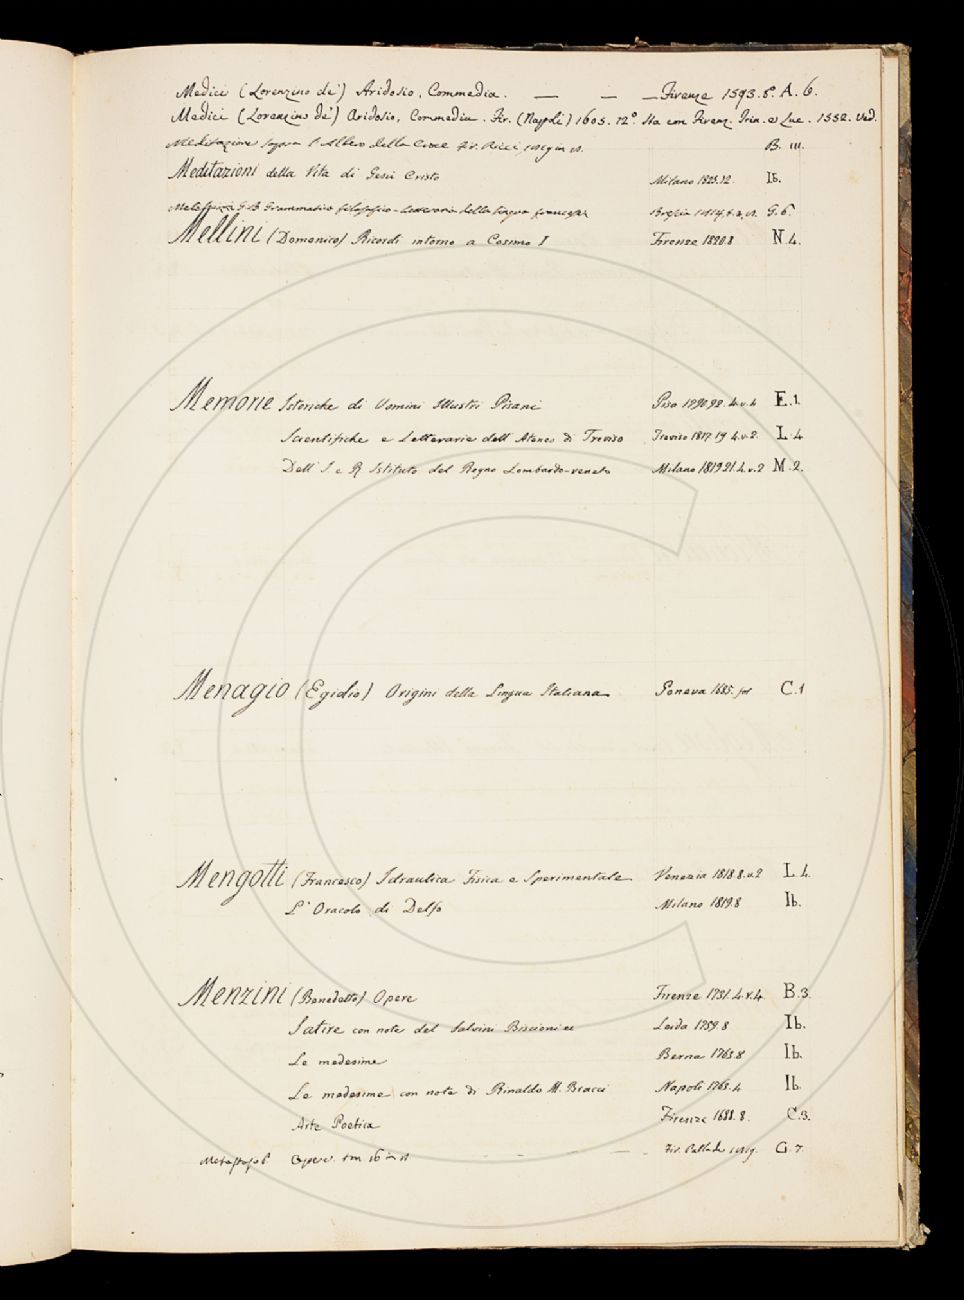 Medici (Lorenzino de') Aridosio, Commedia. — — — Firenze 1593. 8° A. 6.
Medici (Lorenzino de') Aridosio, Commedia. Fir. (Napoli) 1605. 12° Sta con Firenz. Trin. e Luc. 1552. Ved.
Meditazione sopra l'Albero della Croce Fir. Ricci B. III.
Meditazioni della Vita di Gesù Cristo Milano 1823. 12. Ib.
G. B. Grammatica filosofico-letteraria della lingua francese Brescia G. 6.
Mellini (Domenico) Ricordi intorno a Cosimo I Firenze 1820. 8 N. 4.
Memorie Istoriche di Uomini Illustri Pisani Pisa 1790.92. 4. v. 4 E. 1.
Scientifiche e Letterarie dell' Ateneo di Treviso Treviso 1817.19 4. v. 2. L. 4
Dell' I. e R. Istituto del Regno Lombardo-veneto Milano 1819.21. 4. v. 2 M. 2.
Menagio (Egidio) Origini della Lingua Italiana Geneva 1685. fol C. 1
Mengotti (Francesco) Idraulica Fisica e Sperimentale Venezia 1818. 8. v. 2 L. 4.
L'Oracolo di Delfo Milano 1819. 8 Ib.
Menzini (Benedetto) Opere Firenze 1731. 4. v. 4 B. 3.
Satire con note del Salvini Biscioni ec Leida 1759. 8 Ib.
Le medesime Berna 1763. 8 Ib.
Le medesime con note di Rinaldo M. Bracci Napoli 1763. 4 Ib.
Arte Poetica Firenze 1688. 8. C. 3.
Opere. tom 16 in — — — Fir. G. 7.